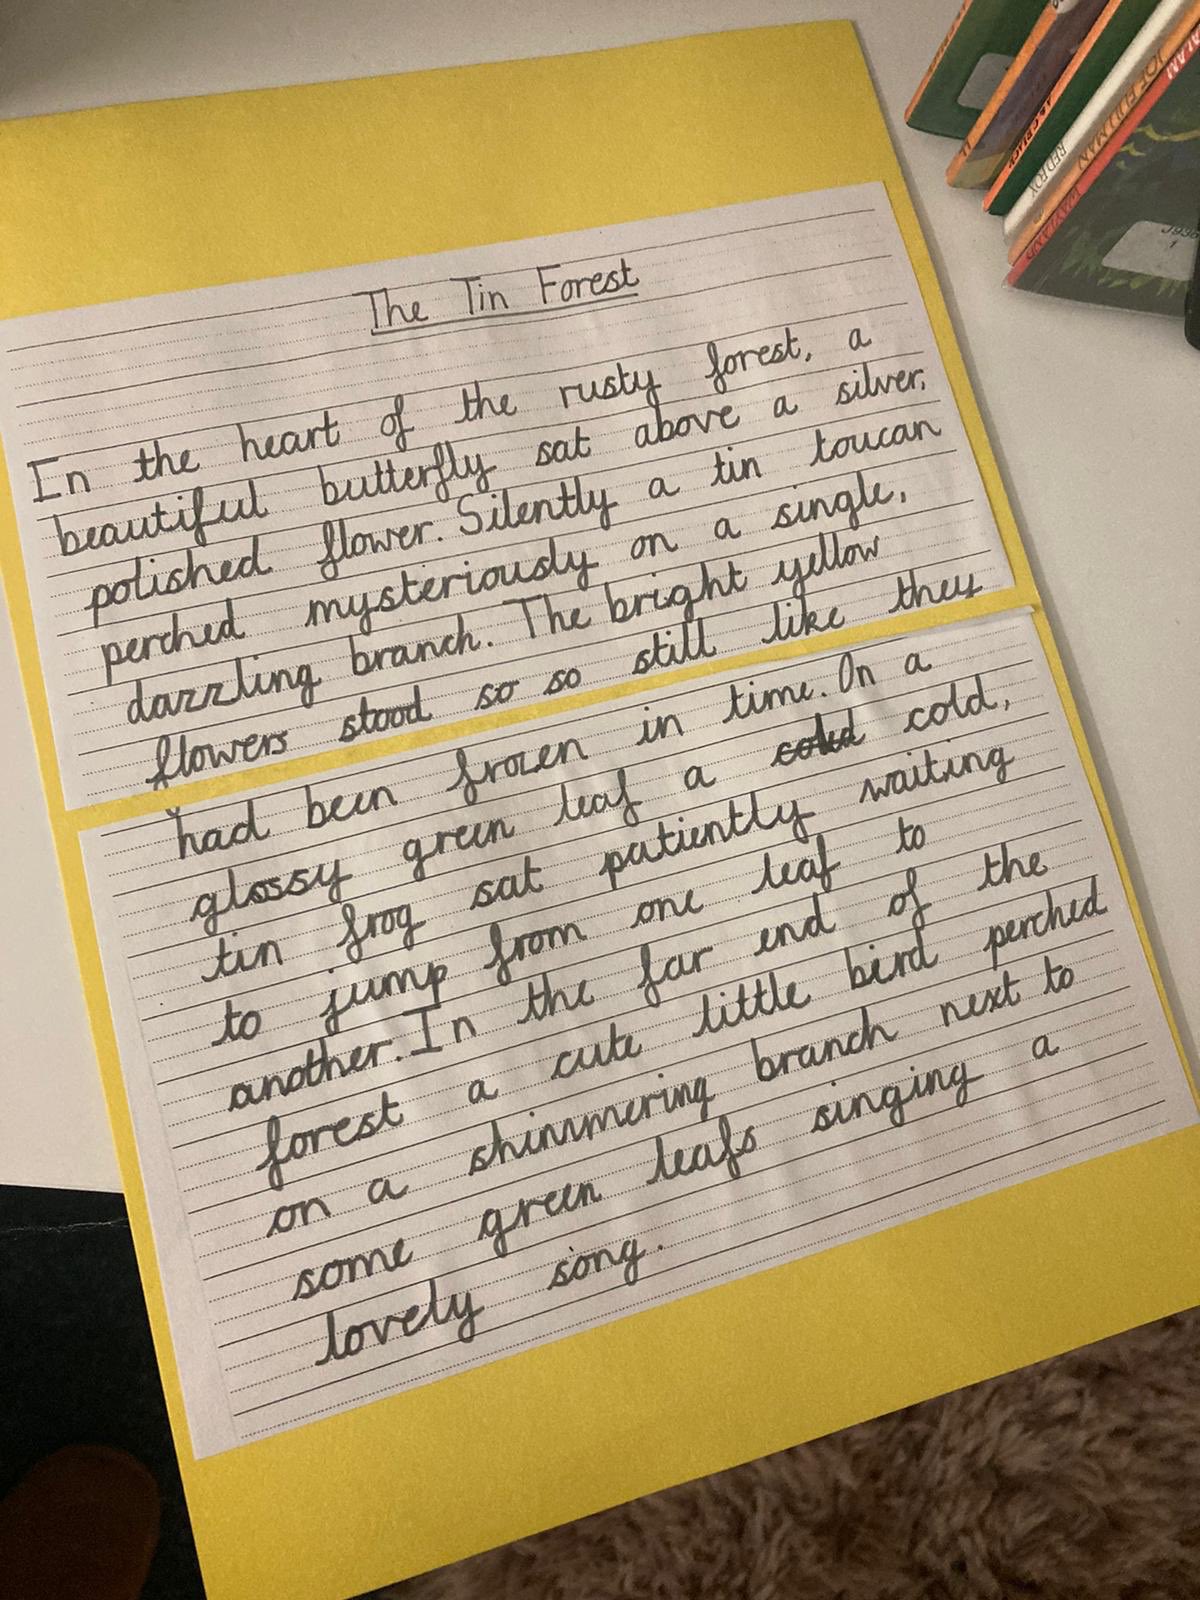 The Tin Forest
In the heart of the rusty forest, a
beautiful butterfly sat above a silver,
polished flower. Silently a tin toucan
perched mysteriously on a single,
dazzling branch. The bright yellow
flowers stood so so still like they
had been frozen in time. On a
glossy green leaf a cold cold,
tin frog sat patiently waiting
to jump from one leaf to
another. In the far end of the
forest a cute little bird perched
on a shimmering branch next to
some green leafs singing a
lovely song.
RED FOX
JOE FULLMAN
WAYLAND